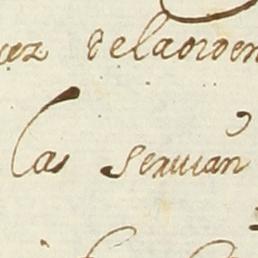 delaorden
las seruian